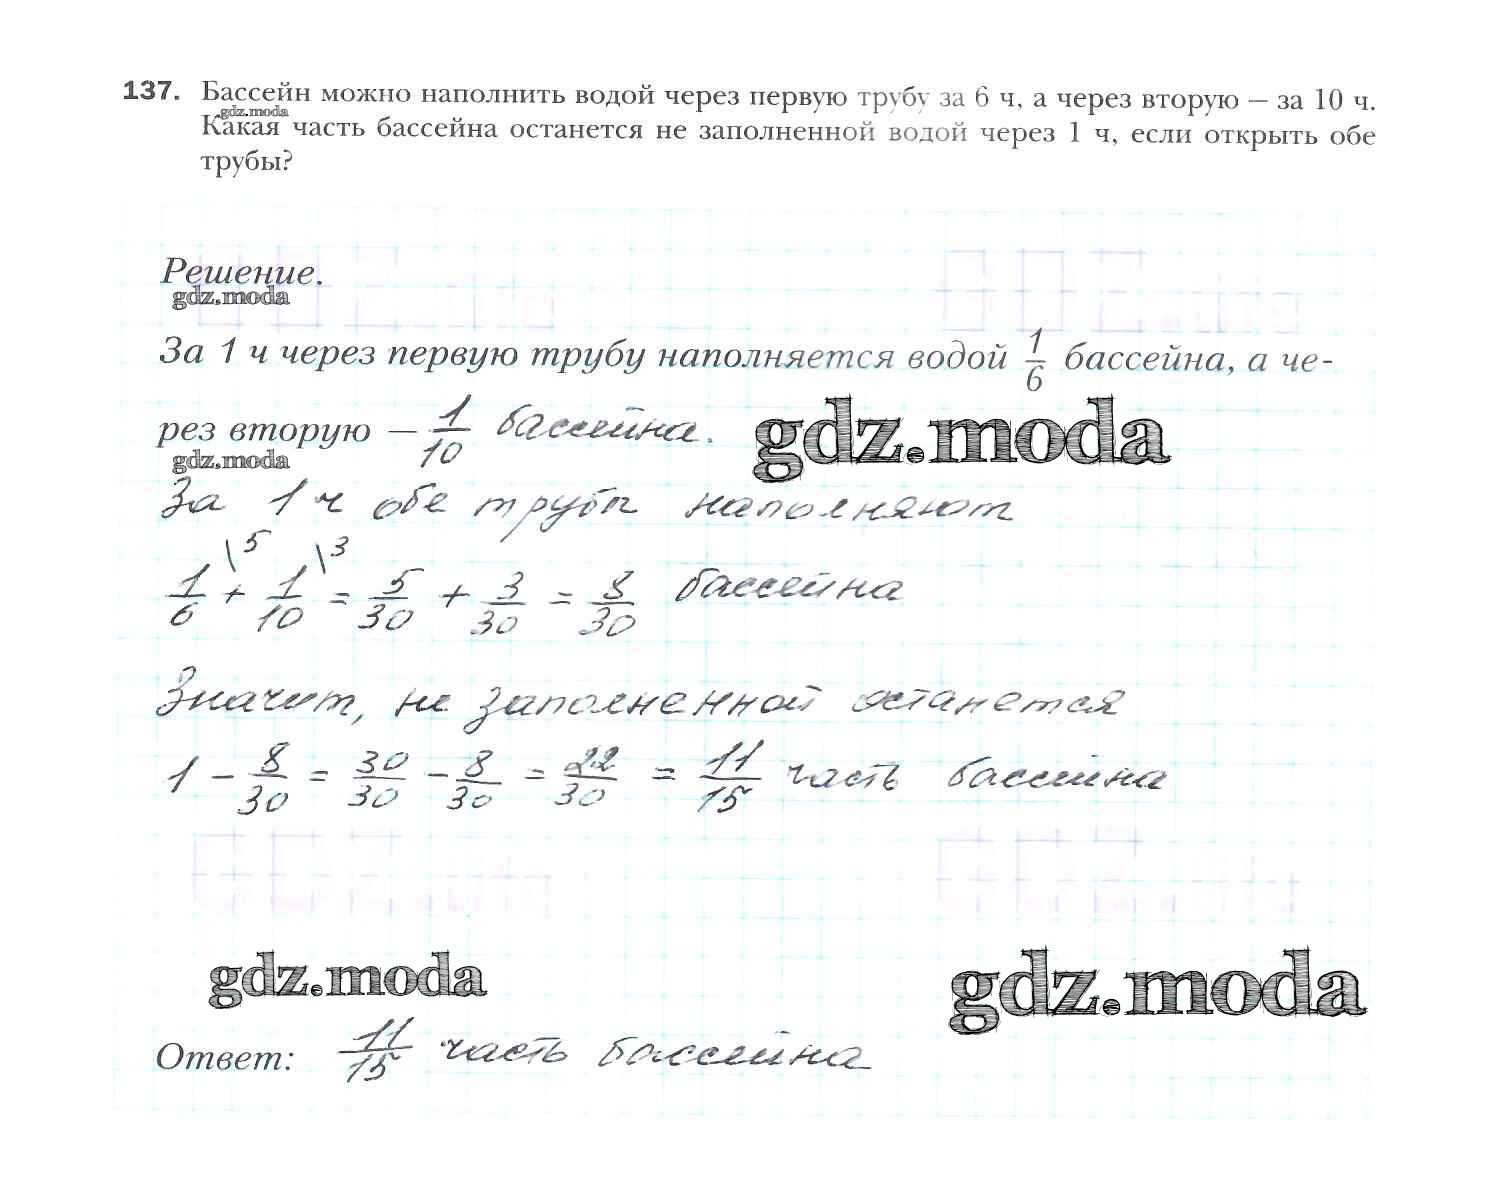 137. Бассейн можно наполнить водой через первую трубу за 6 ч, а через вторую – за 10 ч.
gdz.moda
Какая часть бассейна останется не заполненной водой через 1 ч, если открыть обе
трубы?
Решение.
gdz.moda
За 1 ч через первую трубу наполняется водой 1/6 бассейна, а че-
рез вторую — 1/10 бассейна.
gdz.moda
gdz.moda
За 1 ч обе трубы наполняют
1/6 \5 + 1/10 \3 = 5/30 + 3/30 = 8/30 бассейна
Значит, не заполненной останется
1 - 8/30 = 30/30 - 8/30 = 22/30 = 11/15 часть бассейна
gdz.moda
gdz.moda
Ответ: 11/15 часть бассейна